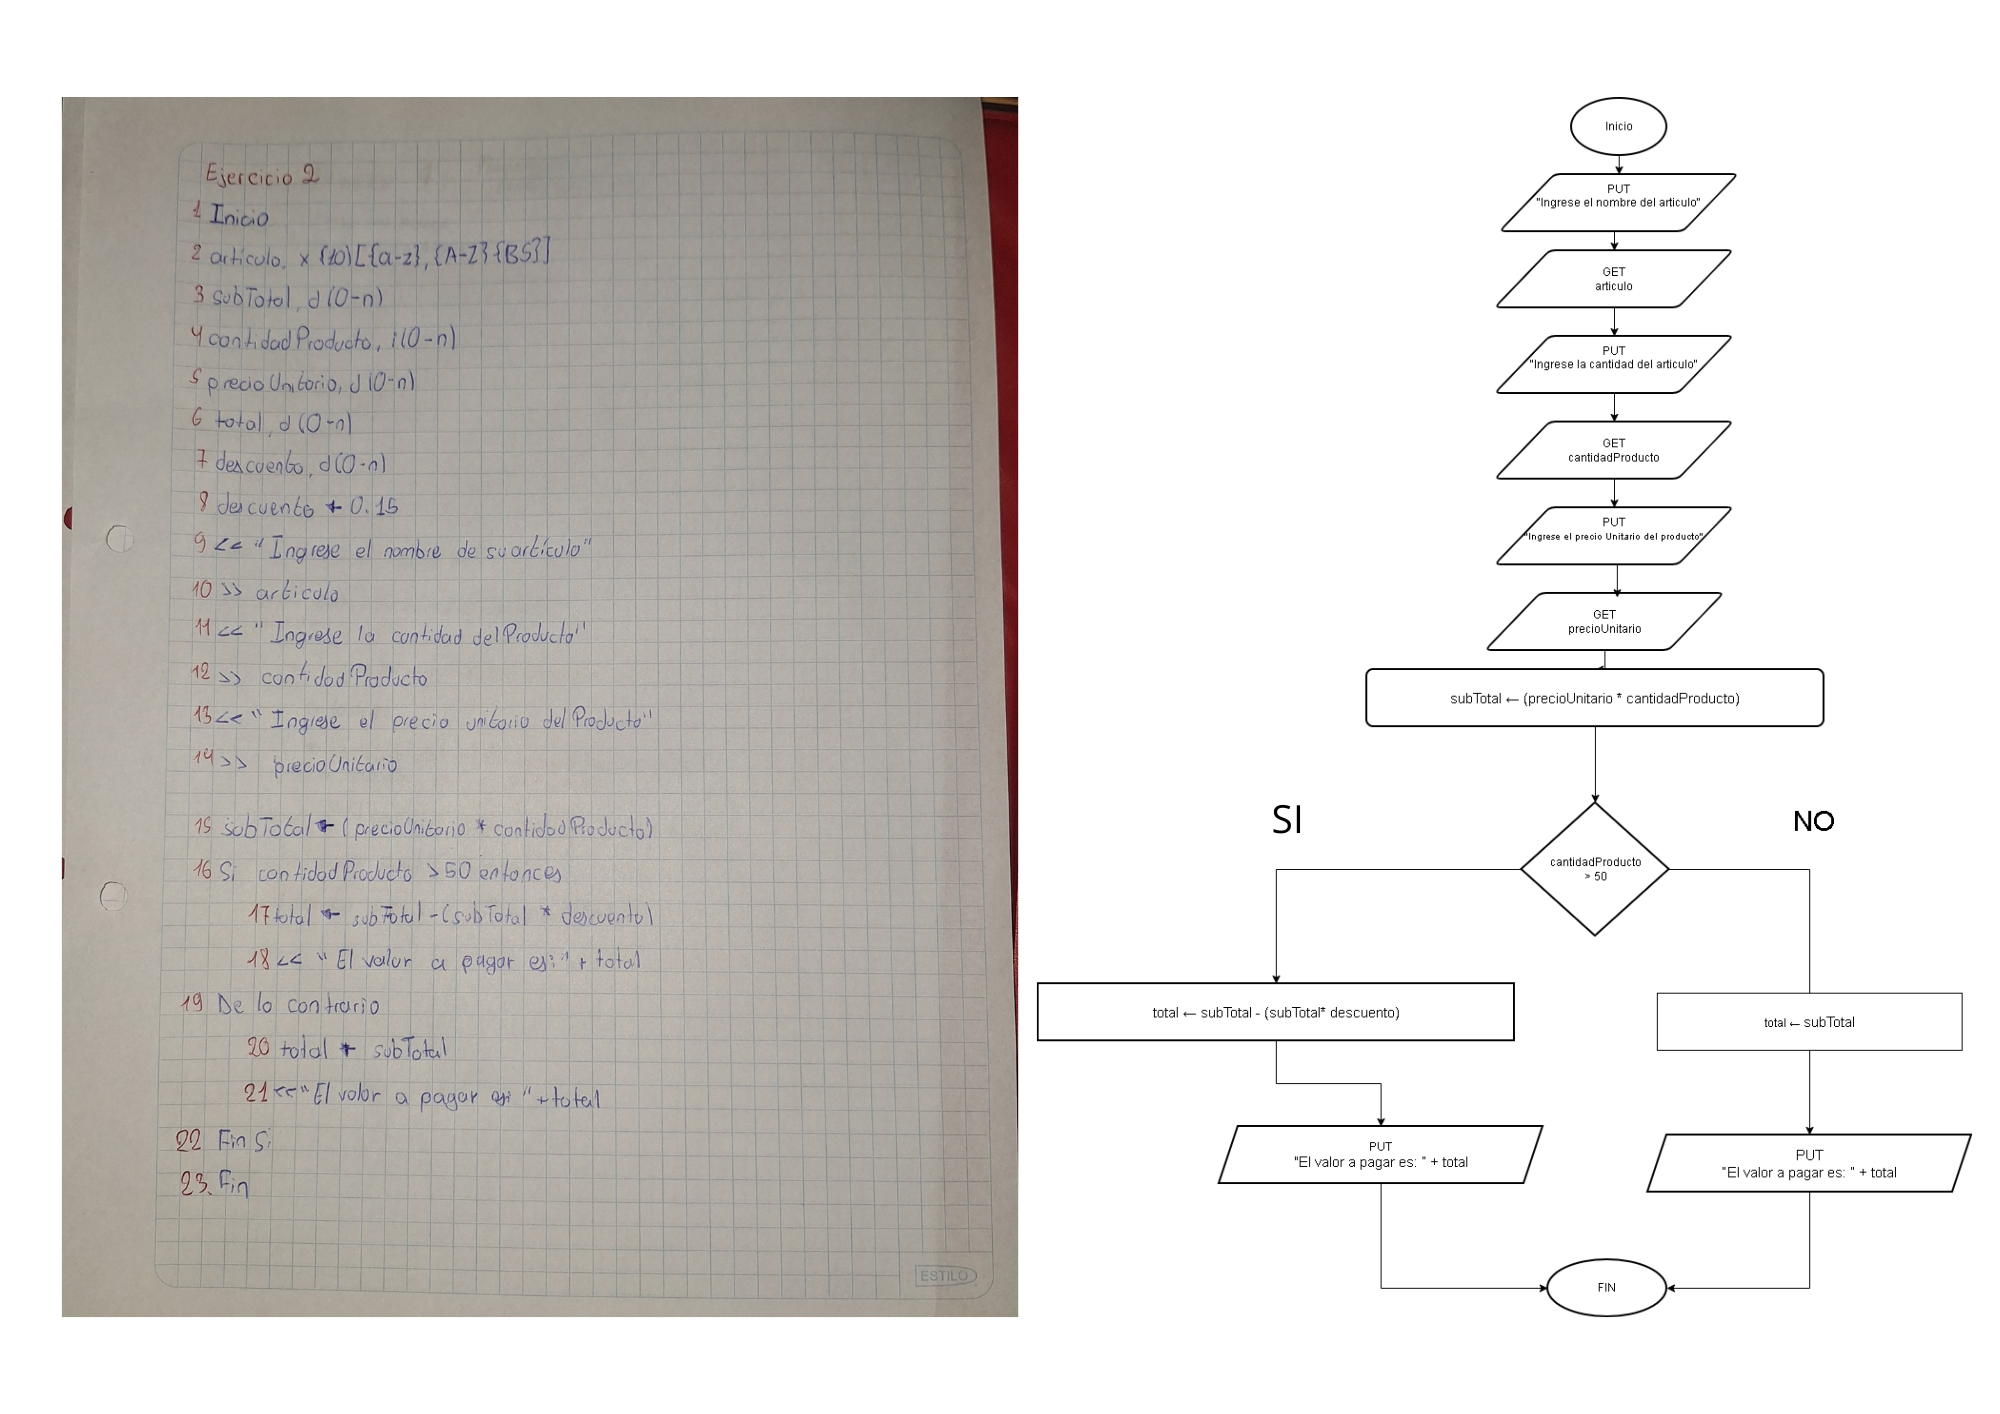 Ejercicio 2
1 Inicio
2 artículo, x (10)[{a-z},{A-Z}{BS}]
3 subTotal, d (0-n)
4 cantidadProducto, i(0-n)
5 precioUnitario, d (0-n)
6 total, d (0-n)
7 descuento, d(0-n)
8 descuento ← 0.15
9 << "Ingrese el nombre de su artículo"
10 >> articulo
11 << "Ingrese la cantidad del Producto"
12 >> cantidadProducto
13 << "Ingrese el precio unitario del Producto"
14 >> precioUnitario
15 subTotal ← (precioUnitario * cantidadProducto)
16 Si cantidadProducto >50 entonces
17 total ← subTotal -(subTotal * descuento)
18 << "El valor a pagar es:" + total
19 De lo contrario
20 total ← subTotal
21 << "El valor a pagar es: " + total
22 Fin Si
23. Fin
ESTILO
Inicio
PUT
"Ingrese el nombre del articulo"
GET
articulo
PUT
"Ingrese la cantidad del articulo"
GET
cantidadProducto
PUT
"Ingrese el precio Unitario del producto"
GET
precioUnitario
subTotal ← (precioUnitario * cantidadProducto)
SI
NO
cantidadProducto
> 50
total ← subTotal - (subTotal* descuento)
total ← subTotal
PUT
"El valor a pagar es: " + total
PUT
"El valor a pagar es: " + total
FIN